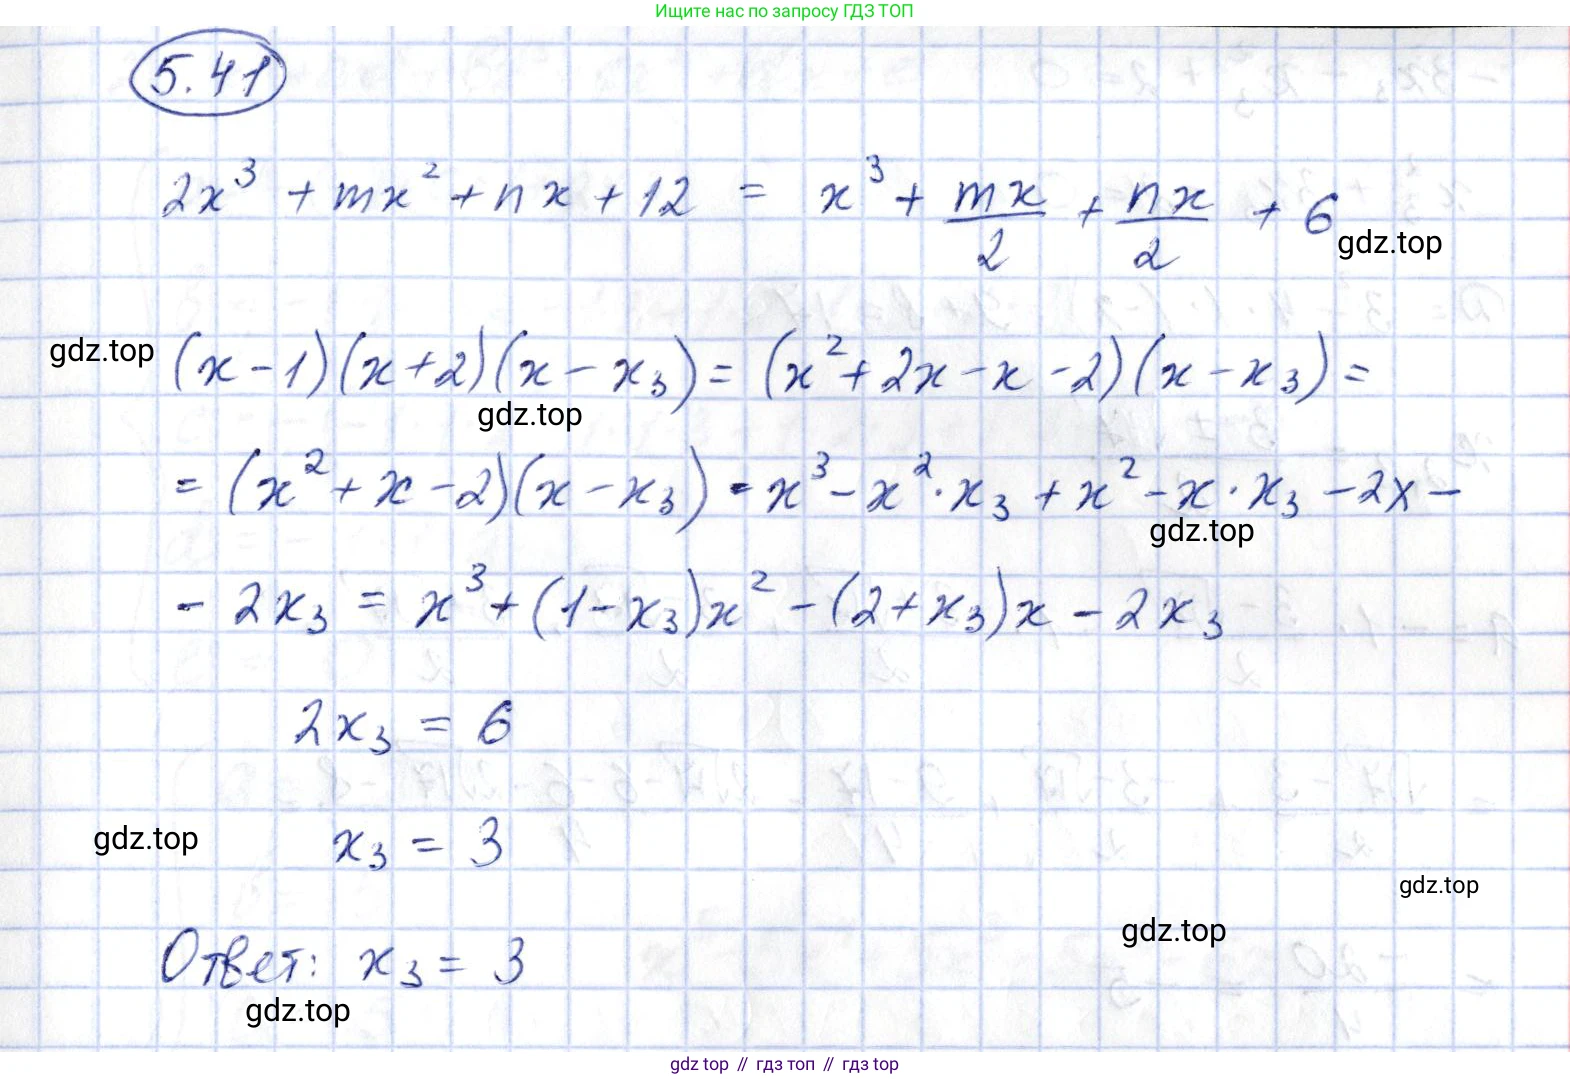 Ищите нас по запросу ГДЗ ТОП
5.41
2x³ + mx² + nx + 12 = x³ + mx/2 + nx/2 + 6
gdz.top
gdz.top
(x - 1)(x + 2)(x - x₃) = (x² + 2x - x - 2)(x - x₃) =
gdz.top
= (x² + x - 2)(x - x₃) = x³ - x² · x₃ + x² - x · x₃ - 2x -
gdz.top
- 2x₃ = x³ + (1 - x₃)x² - (2 + x₃)x - 2x₃
2x₃ = 6
gdz.top
x₃ = 3
gdz.top
gdz.top
Ответ: x₃ = 3
gdz.top
gdz top // гдз топ // gdz top